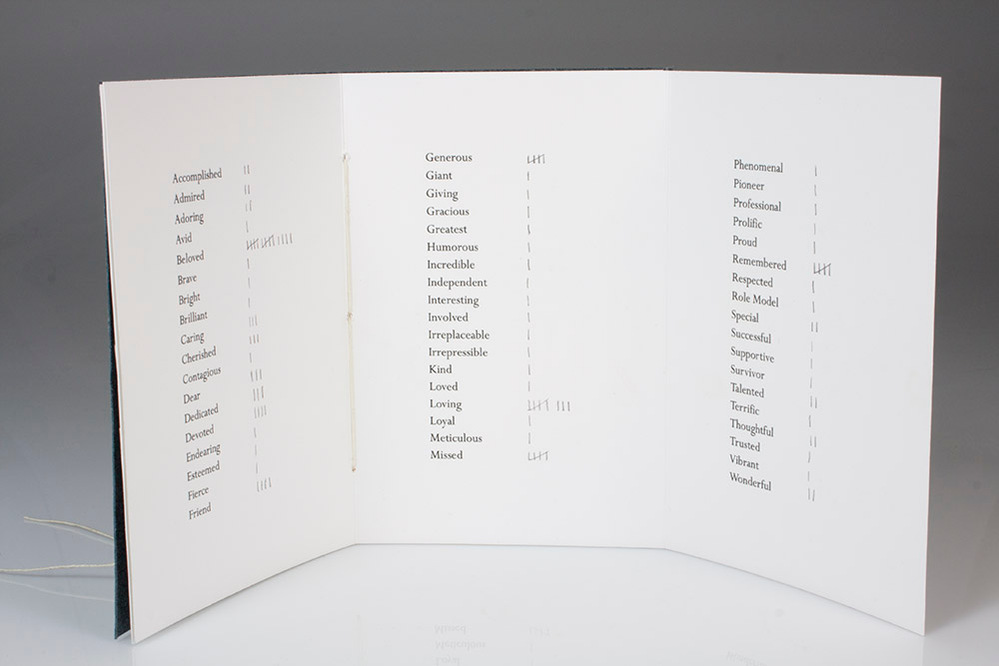 Accomplished
Admired
Adoring
Avid
Beloved
Brave
Bright
Brilliant
Caring
Cherished
Contagious
Dear
Dedicated
Devoted
Endearing
Esteemed
Fierce
Friend
Generous
Giant
Giving
Gracious
Greatest
Humorous
Incredible
Independent
Interesting
Involved
Irreplaceable
Irrepressible
Kind
Loved
Loving
Loyal
Meticulous
Missed
Phenomenal
Pioneer
Professional
Prolific
Proud
Remembered
Respected
Role Model
Special
Successful
Supportive
Survivor
Talented
Terrific
Thoughtful
Trusted
Vibrant
Wonderful